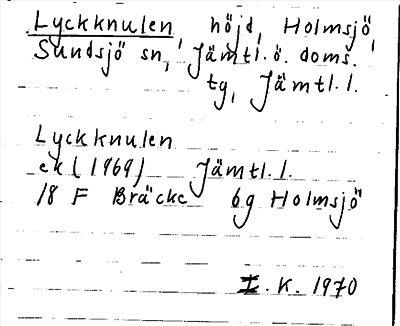 Lyckknulen, höjd, Holmsjö,
Sundsjö sn, Jämtl. ö. doms.
tg, Jämtl. l.
Lyckknulen
ek (1969) Jämtl. l.
18 F Bräcke 6g Holmsjö
I. K. 1970